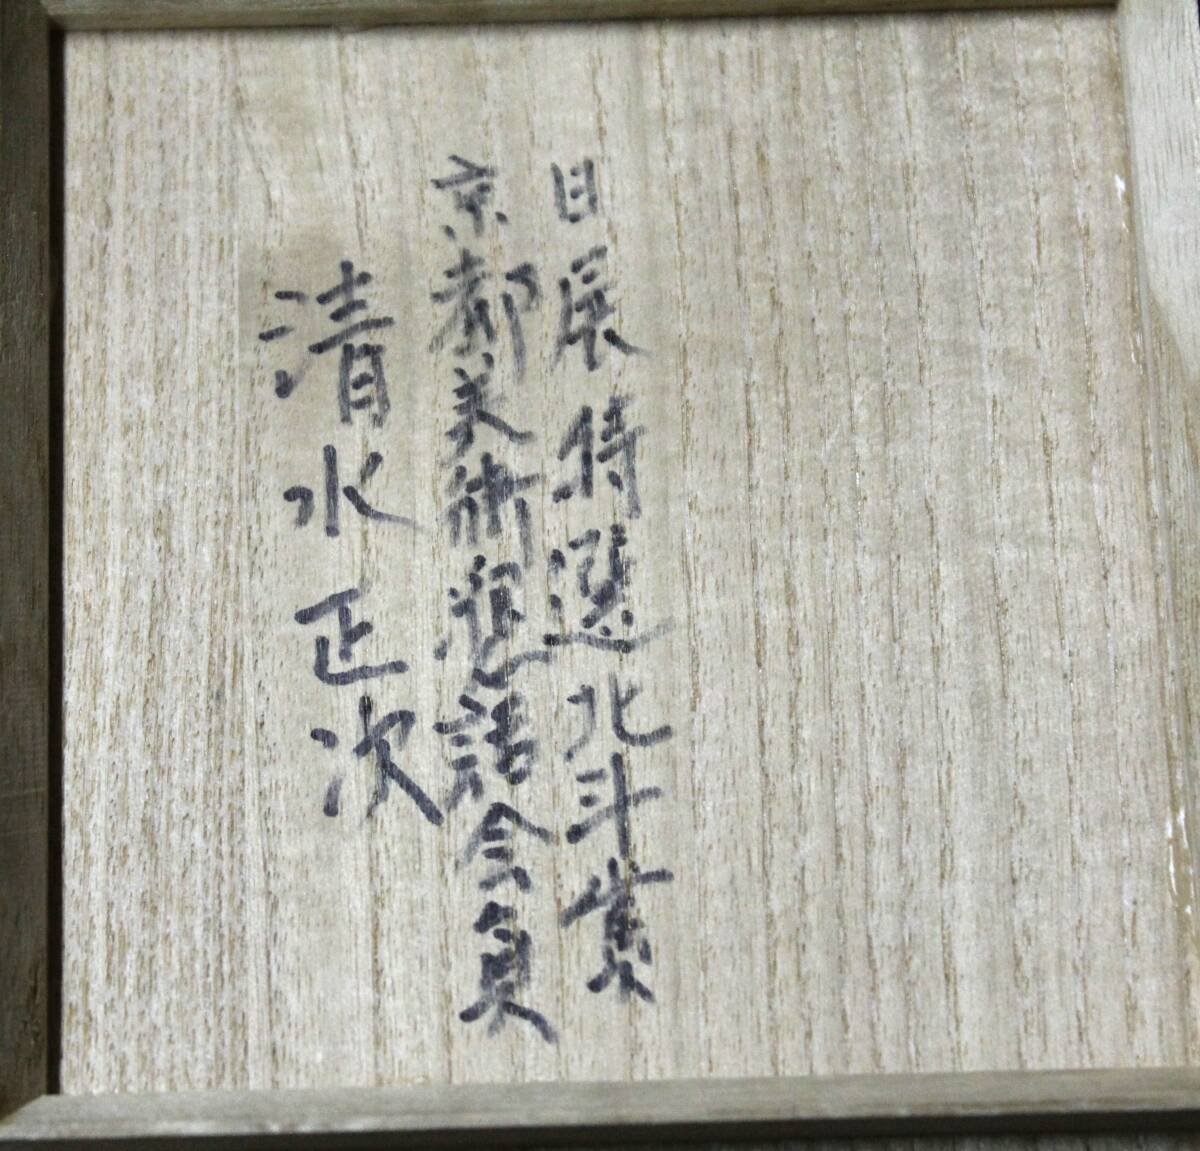 日展特選北斗賞
京都美術懇話会員
清水正次